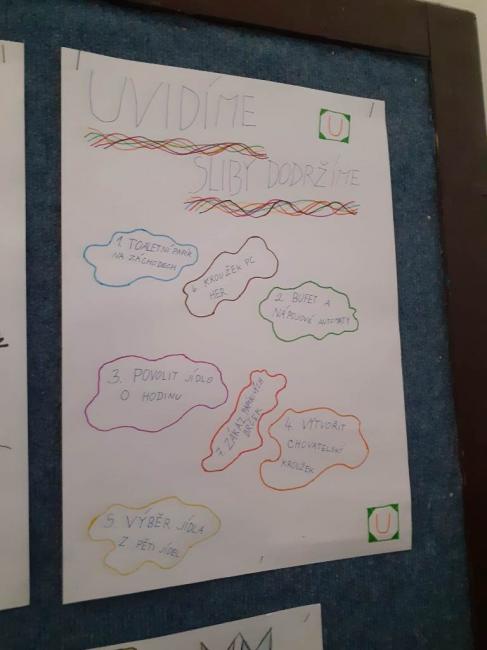 UVIDÍME
U
SLIBY DODRŽÍME
1. TOALETNÍ PAPÍR
NA ZÁCHODECH
6. KROUŽEK PC
HER
2. BUFET A
NÁPOJOVÉ AUTOMATY
3. POVOLIT JÍDLO
O HODINU
7. ZÁKAZ PAPÍROVÝCH
BRČEK
4. VYTVOŘIT
CHOVATELSKÝ
KROUŽEK
5. VÝBĚR JÍDLA
Z PĚTI JÍDEL
U